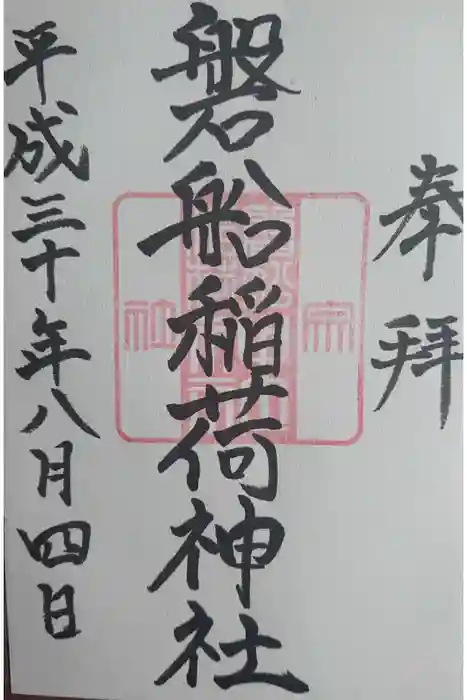 奉拝
磐船稲荷神社
平成三十年八月四日